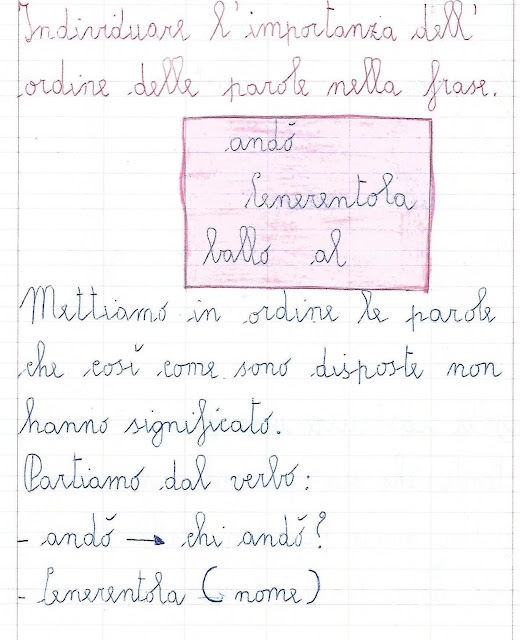 Individuare l'importanza dell'
ordine delle parole nella frase.
andò
Cenerentola
ballo al
Mettiamo in ordine le parole
che così come sono disposte non
hanno significato.
Partiamo dal verbo:
- andò → chi andò?
- Cenerentola (nome)